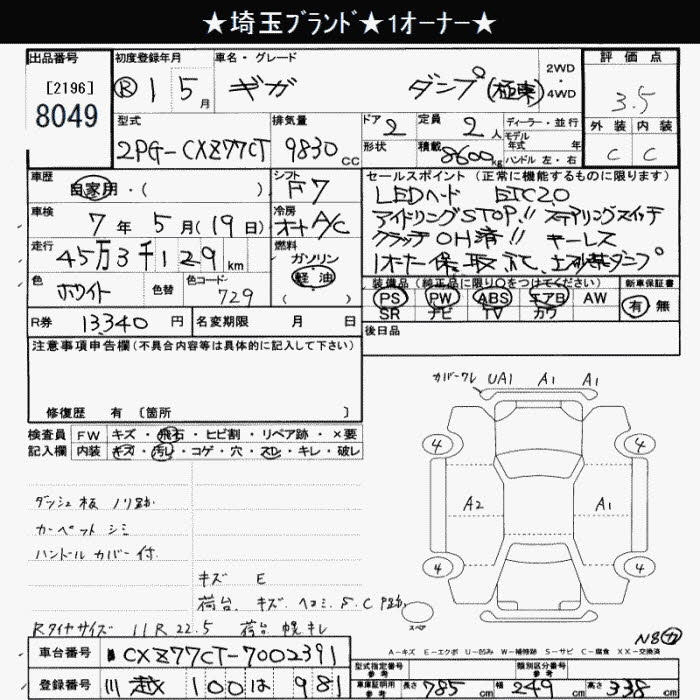 ★埼玉ブランド★1オーナー★
出品番号
[2196]
8049
初度登録年月
Ⓡ1 5月
車名・グレード
ギガ ダンプ(極東)
2WD・4WD
評価点
3.5
型式
2PG-CXZ77CT
排気量
9830cc
ドア 2
定員 2人
形状
積載 8600kg
ディーラー・並行
モデル年式 年
ハンドル 左・右
外装 内装
C C
車歴
自家用・( )
シフト
F7
車検
7年5月(19日)
冷房
オートA/C
走行
45万3千129km
燃料
ガソリン
軽油
( )
色
ホワイト
色替
色コード
729
セールスポイント (正常に機能するものに限ります)
LEDヘッド ETC2.0
アイドリングSTOP!! ステアリングスイッチ
クラッチOH済!! キーレス
1オーナー 保、取 ダンプ
装備品(純正品に限り○をつけてください)
新車保証書
PS PW ABS エアB AW
SR ナビ TV カワ
有 無
R券 13,340円
名変期限 月 日
後日品
注意事項申告欄(不具合内容等は具体的に記入して下さい)
修復歴 有 〔箇所 〕
検査員記入欄
FW キズ・飛石・ヒビ割・リペア跡・×要
内装 キズ・汚レ・コゲ・穴・スレ・キレ・破レ
ダッシュ板 ノリ跡
カーペット シミ
ハンドルカバー付
キズ E
荷台 キズ、ヘコミ、S、C P跡
Rタイヤサイズ 11R22.5 荷台 幌キレ
カバーワレ UA1 A1 A1
4 4
A2 A1
4 4
スペア
A-キズ E-エクボ U-凹み W-補修跡 S-サビ C-腐食 XX-交換済
車台番号
CXZ77CT-7002391
登録番号
川越 100 は 981
型式指定番号 参考
類別区分番号 参考
車庫証明用 参考
長さ 785cm
幅 249cm
高さ 338cm